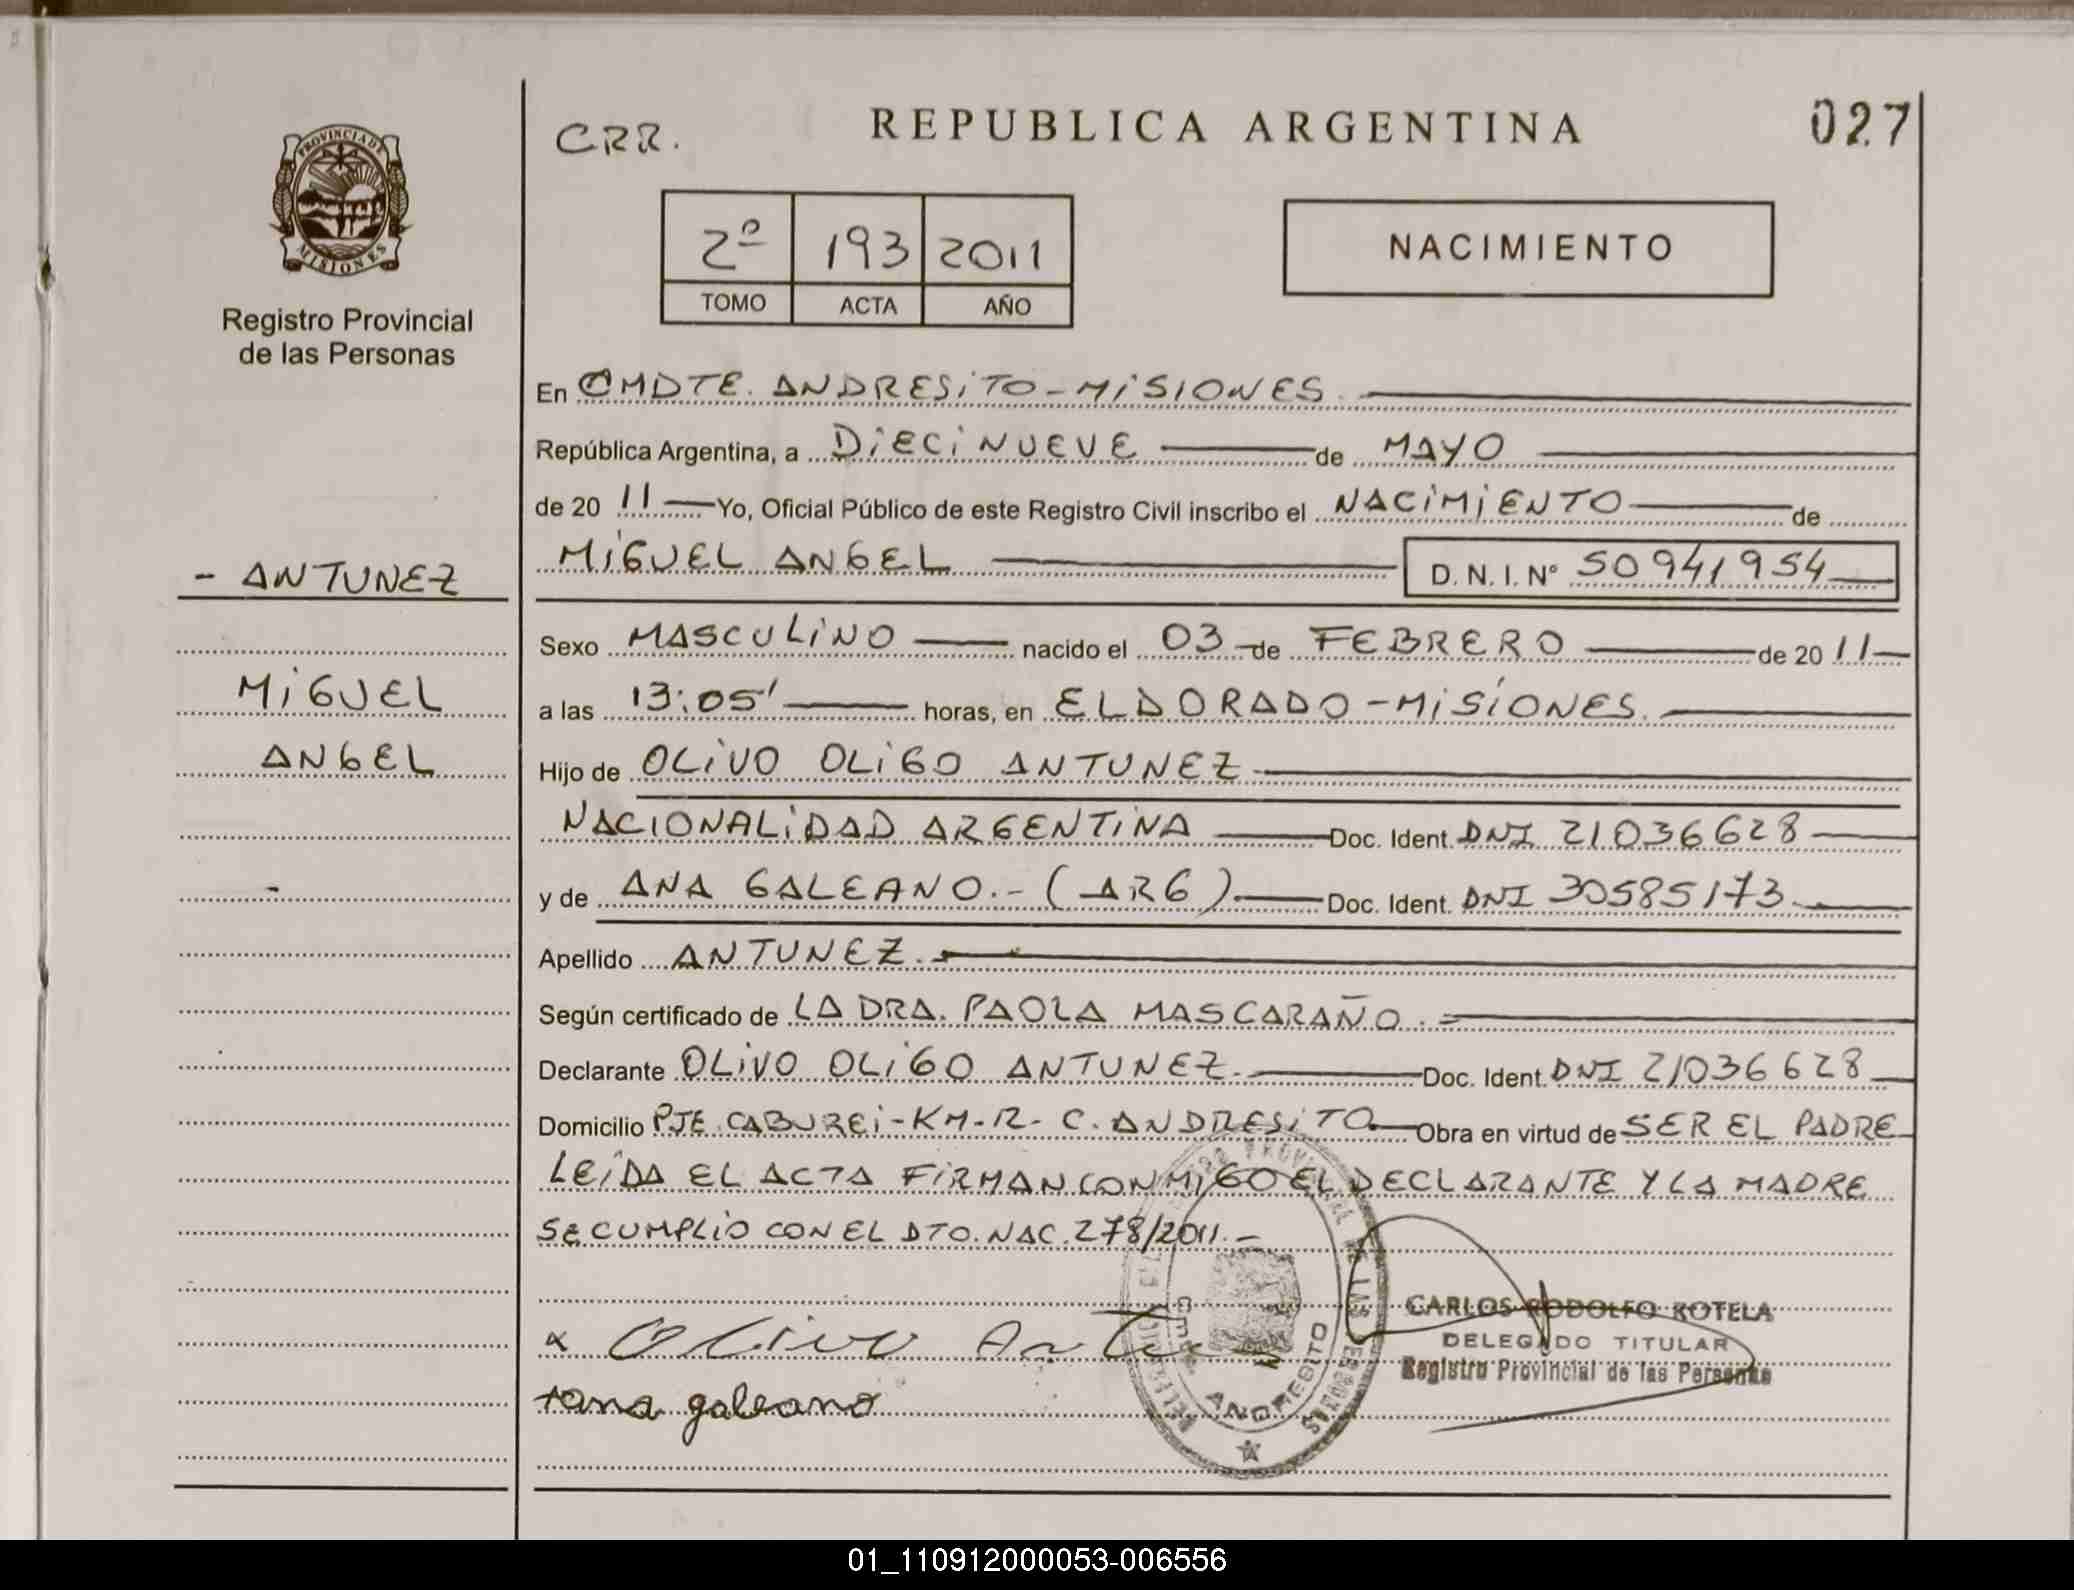 CRR.
REPUBLICA ARGENTINA
027
PROVINCIA DE
MISIONES
Registro Provincial
de las Personas
2º 193 2011
TOMO ACTA AÑO
NACIMIENTO
En CMDTE. ANDRESITO - MISIONES.
República Argentina, a DIECINUEVE de MAYO
de 20 11 Yo, Oficial Público de este Registro Civil inscribo el NACIMIENTO de
MIGUEL ANGEL D. N. I. Nº 50941954
- ANTUNEZ
MIGUEL
ANGEL
Sexo MASCULINO nacido el 03 de FEBRERO de 20 11
a las 13:05' horas, en ELDORADO - MISIONES.
Hijo de OLIVO OLIGO ANTUNEZ
NACIONALIDAD ARGENTINA Doc. Ident. DNI 21036628
y de ANA GALEANO.- (ARG) Doc. Ident. DNI 30585173
Apellido ANTUNEZ.
Según certificado de LA DRA. PAOLA MASCARAÑO.
Declarante OLIVO OLIGO ANTUNEZ. Doc. Ident. DNI 21036628
Domicilio PJE. CABUREI - KM-12- C. ANDRESITO Obra en virtud de SER EL PADRE
LEIDA EL ACTA FIRMAN CONMIGO EL DECLARANTE Y LA MADRE
SE CUMPLIO CON EL DTO. NAC. 278/2011.-
CARLOS RODOLFO ROTELA
DELEGADO TITULAR
Registro Provincial de las Personas
Olivo
galeano
ANDRESITO
01_110912000053-006556